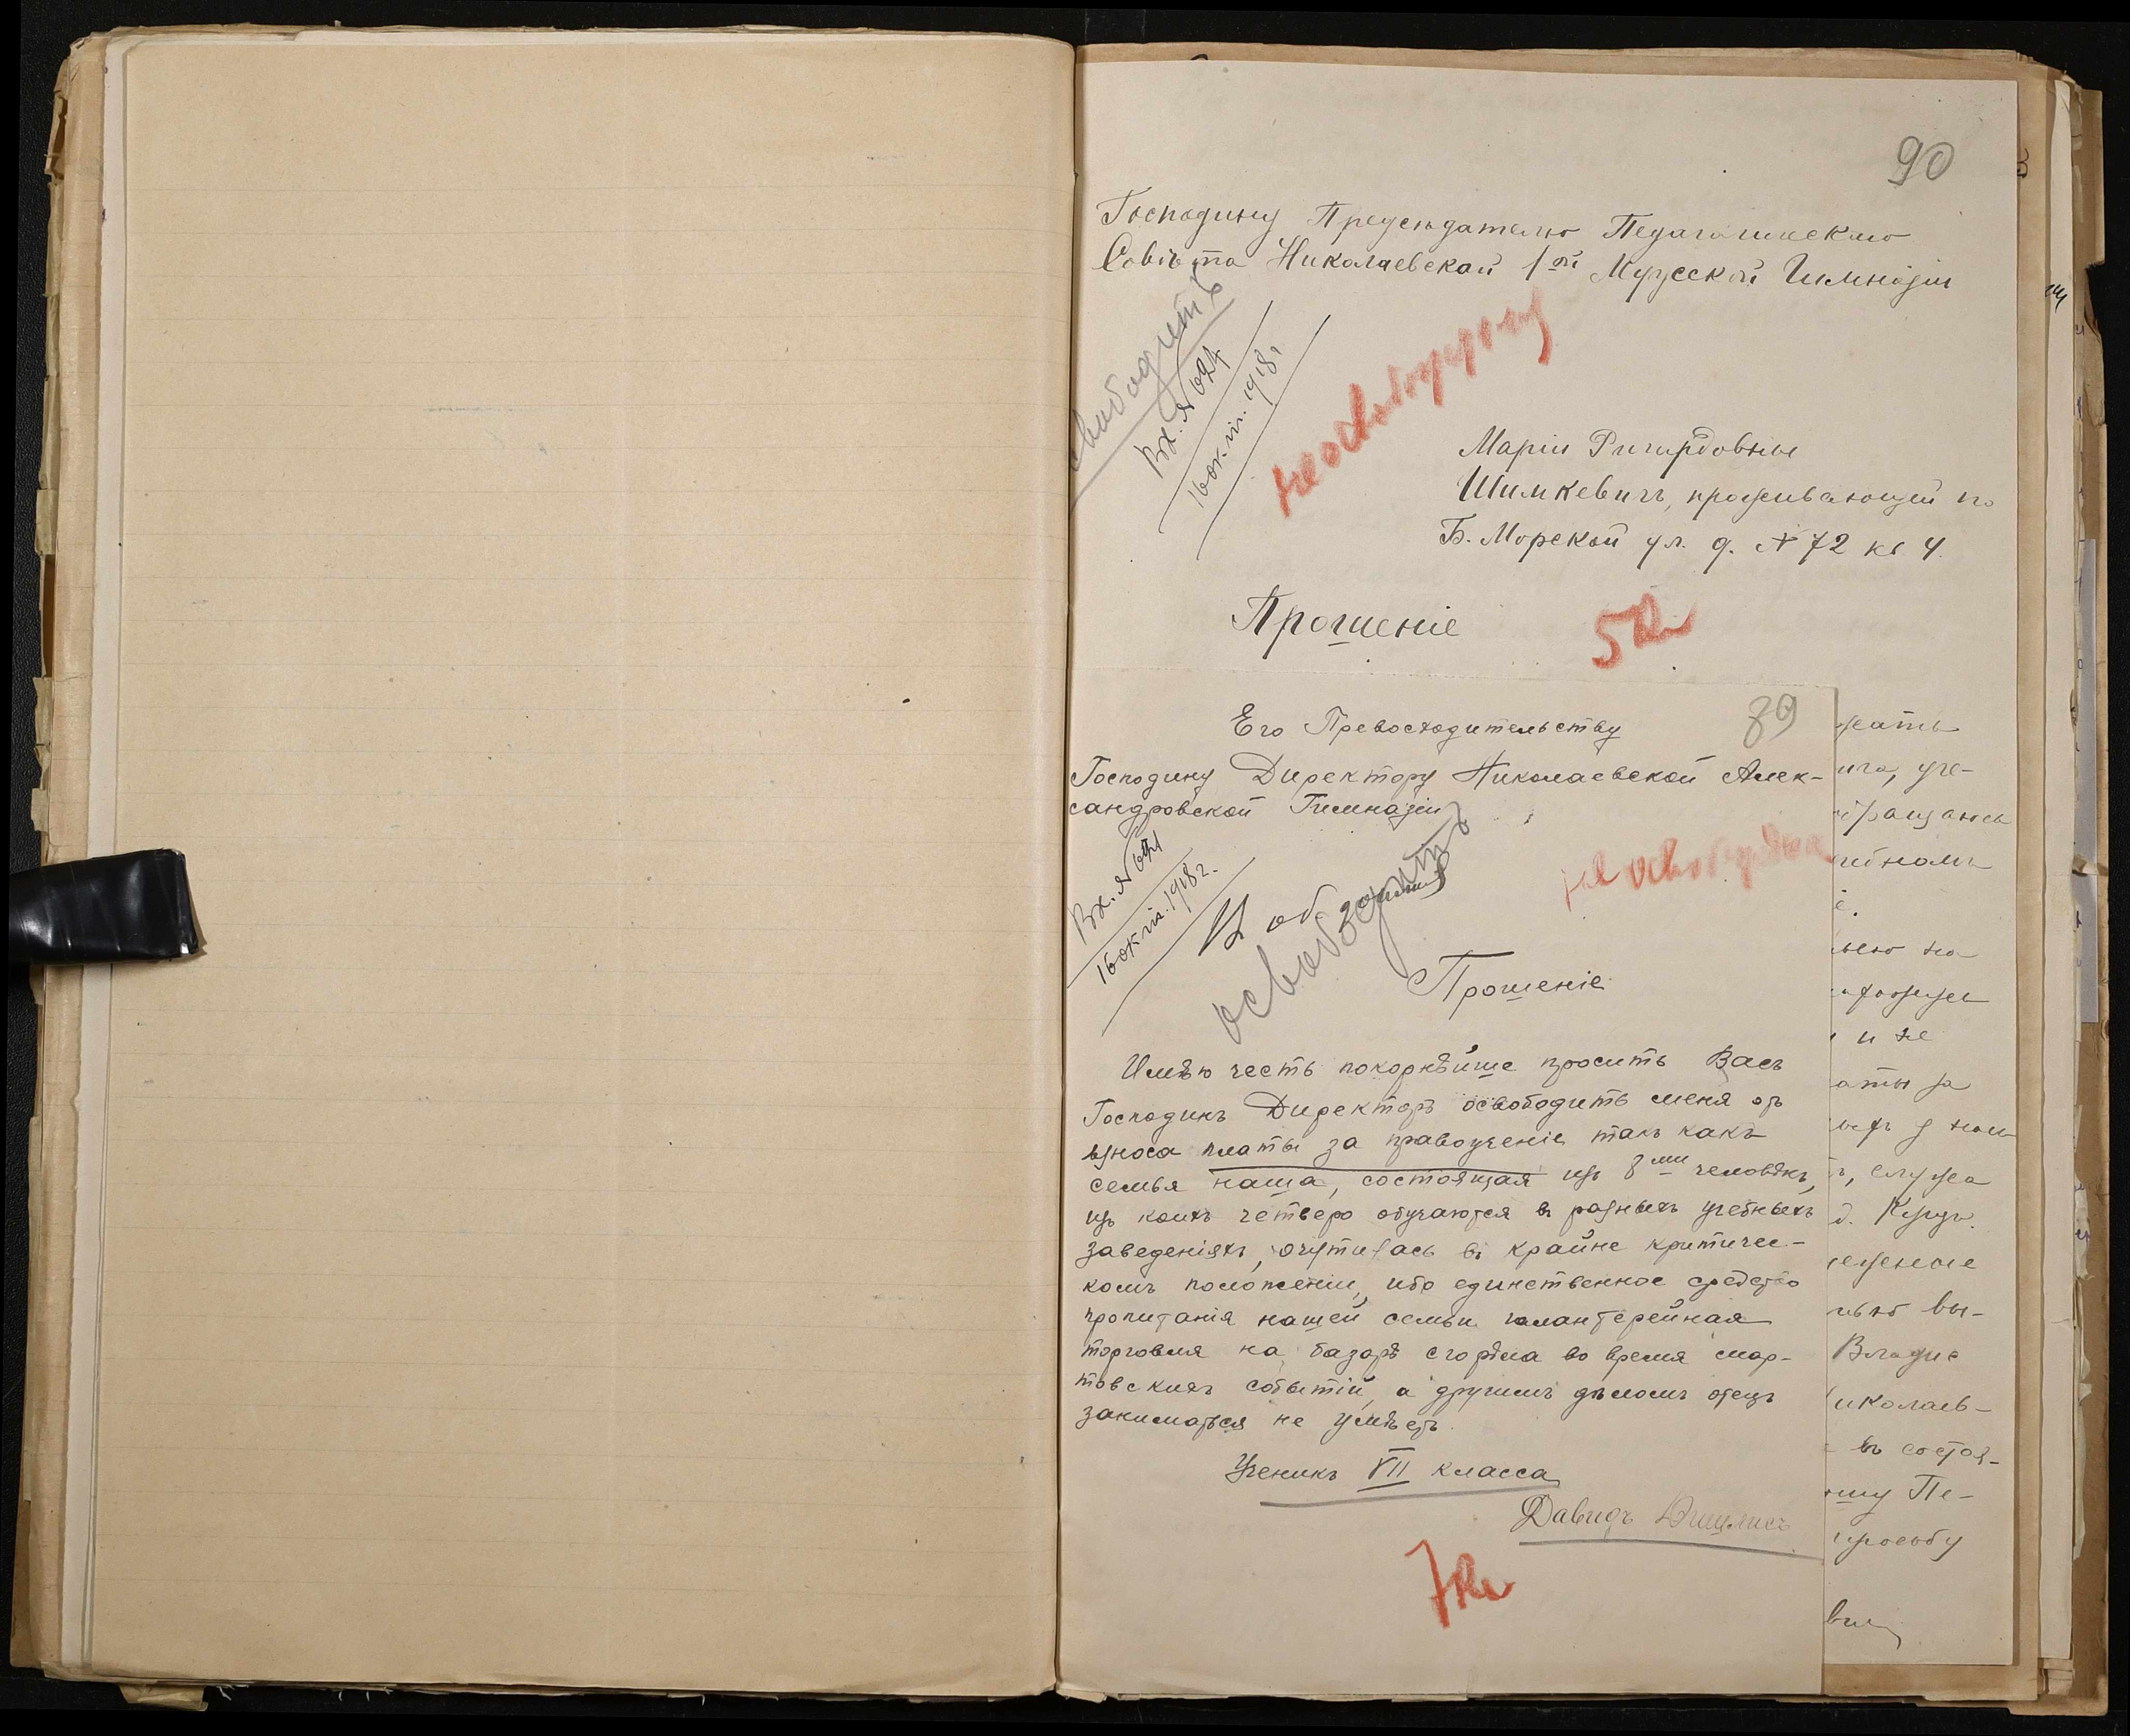 90
Господину Предсѣдателю Педагогическаго
Совѣта Николаевской 1ой Мужской Гимназіи
свободить
Вх. №694
16 окт. 1918 г.
Маріи Ричардовны
Шимкевичъ, проживающей по
Б. Морской ул. д. № 72 кв 4.
Прошеніе
5 кл
89
Его Превосходительству
Господину Директору Николаевской Алек-
сандровской Гимназіи
Вх. №
16 окт. 1918 г.
освободить
не освобожден
Прошеніе
Имѣю честь покорнѣйше просить Васъ
Господинъ Директоръ освободить меня отъ
взноса платы за правоученіе такъ какъ
семья наша, состоящая изъ 8ми человѣкъ,
изъ коихъ четверо обучаются въ разныхъ учебныхъ
заведеніяхъ, очутилась въ крайне критичес-
комъ положеніи, ибо единственное средство
пропитанія нашей семьи галантерейная
торговля на базарѣ сгорѣла во время мар-
товскихъ событій, а другимъ дѣломъ отецъ
заниматься не умѣетъ.
Ученикъ VII класса
Давидъ
7 кл
жать
ича, уче-
бращаюсь
и не
аты за
, служа
Владис
иколаев-
въ состоя-
шу Пе-
просьбу